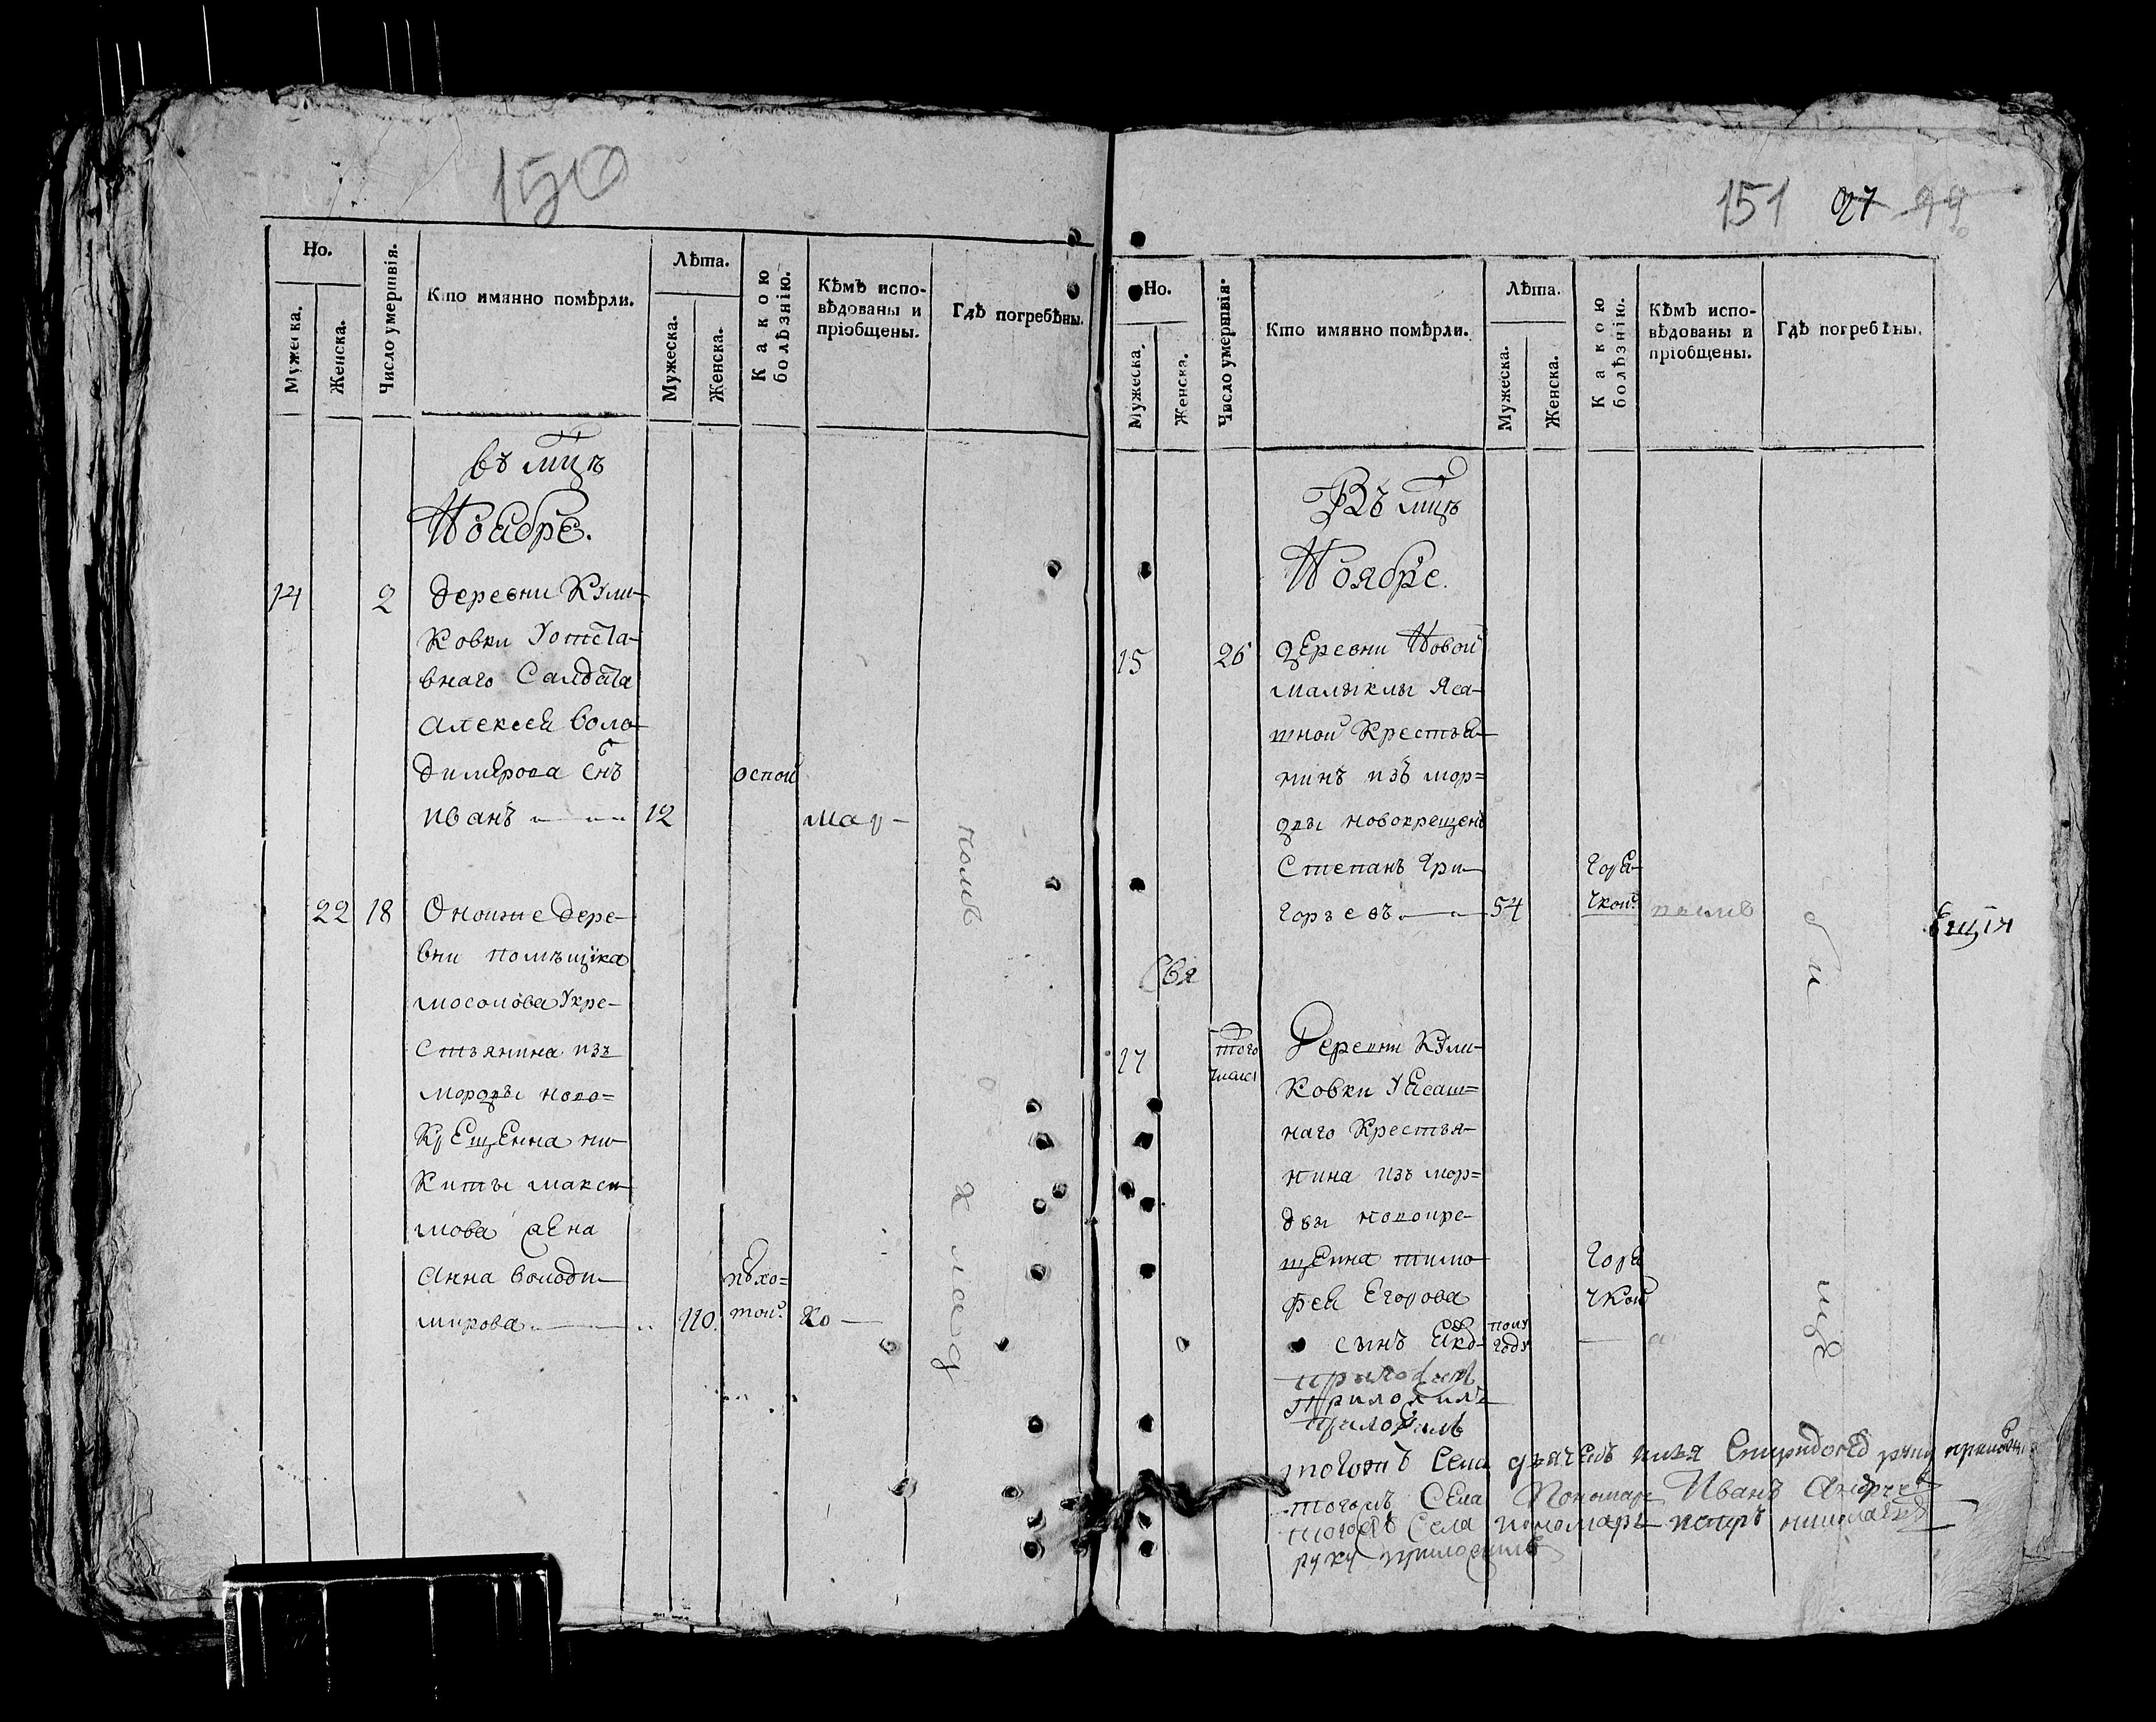 150
Но.
Мужеска.
Женска.
Число умертвія.
Кто имянно помѣрли.
Лѣта.
Мужеска.
Женска.
Какою
болѣзнію.
Кѣмъ испо-
вѣдованы и
пріобщены.
Гдѣ погребѣны.
въ мцѣ
Ноябре.
14 2 деревни Кули-
ковки у отста-
внаго Салдата
Алексея воло-
димерова снъ оспой
иванъ 12 мар-
22 18 Оноиже дере-
вни помѣщика
мосолова у кре-
стьянина изъ
мордвы ново=
крещенна ни-
киты макси-
мова жена
Анна володи- пѣхо=
мирова 110. тои. ко-
151 97 99
Но.
Мужеска.
Женска.
Число умертвія.
Кто имянно помѣрли.
Лѣта.
Мужеска.
Женска.
Какою
болѣзнію.
Кѣмъ испо-
вѣдованы и
пріобщены.
Гдѣ погребѣны.
Въ мцѣ
Ноябре.
15 26 деревни Новой
малыклы яса-
шной крестья-
нинъ изъ мор=
двы новокрещенъ
Степанъ Гри- горя-
горьевъ 54 чкои.
Свя
17 того Деревни Кули-
числа ковки у ясаш=
наго крестья-
нина изъ мор=
двы новокре-
щенна тимо- горя
фея Егорова чкой
сынъ Яко- полу
году
приложил
приложилъ
тогожъ села пономарь Иванъ Андреев
тогожъ села пономарь петръ николаев
руку приложилъ